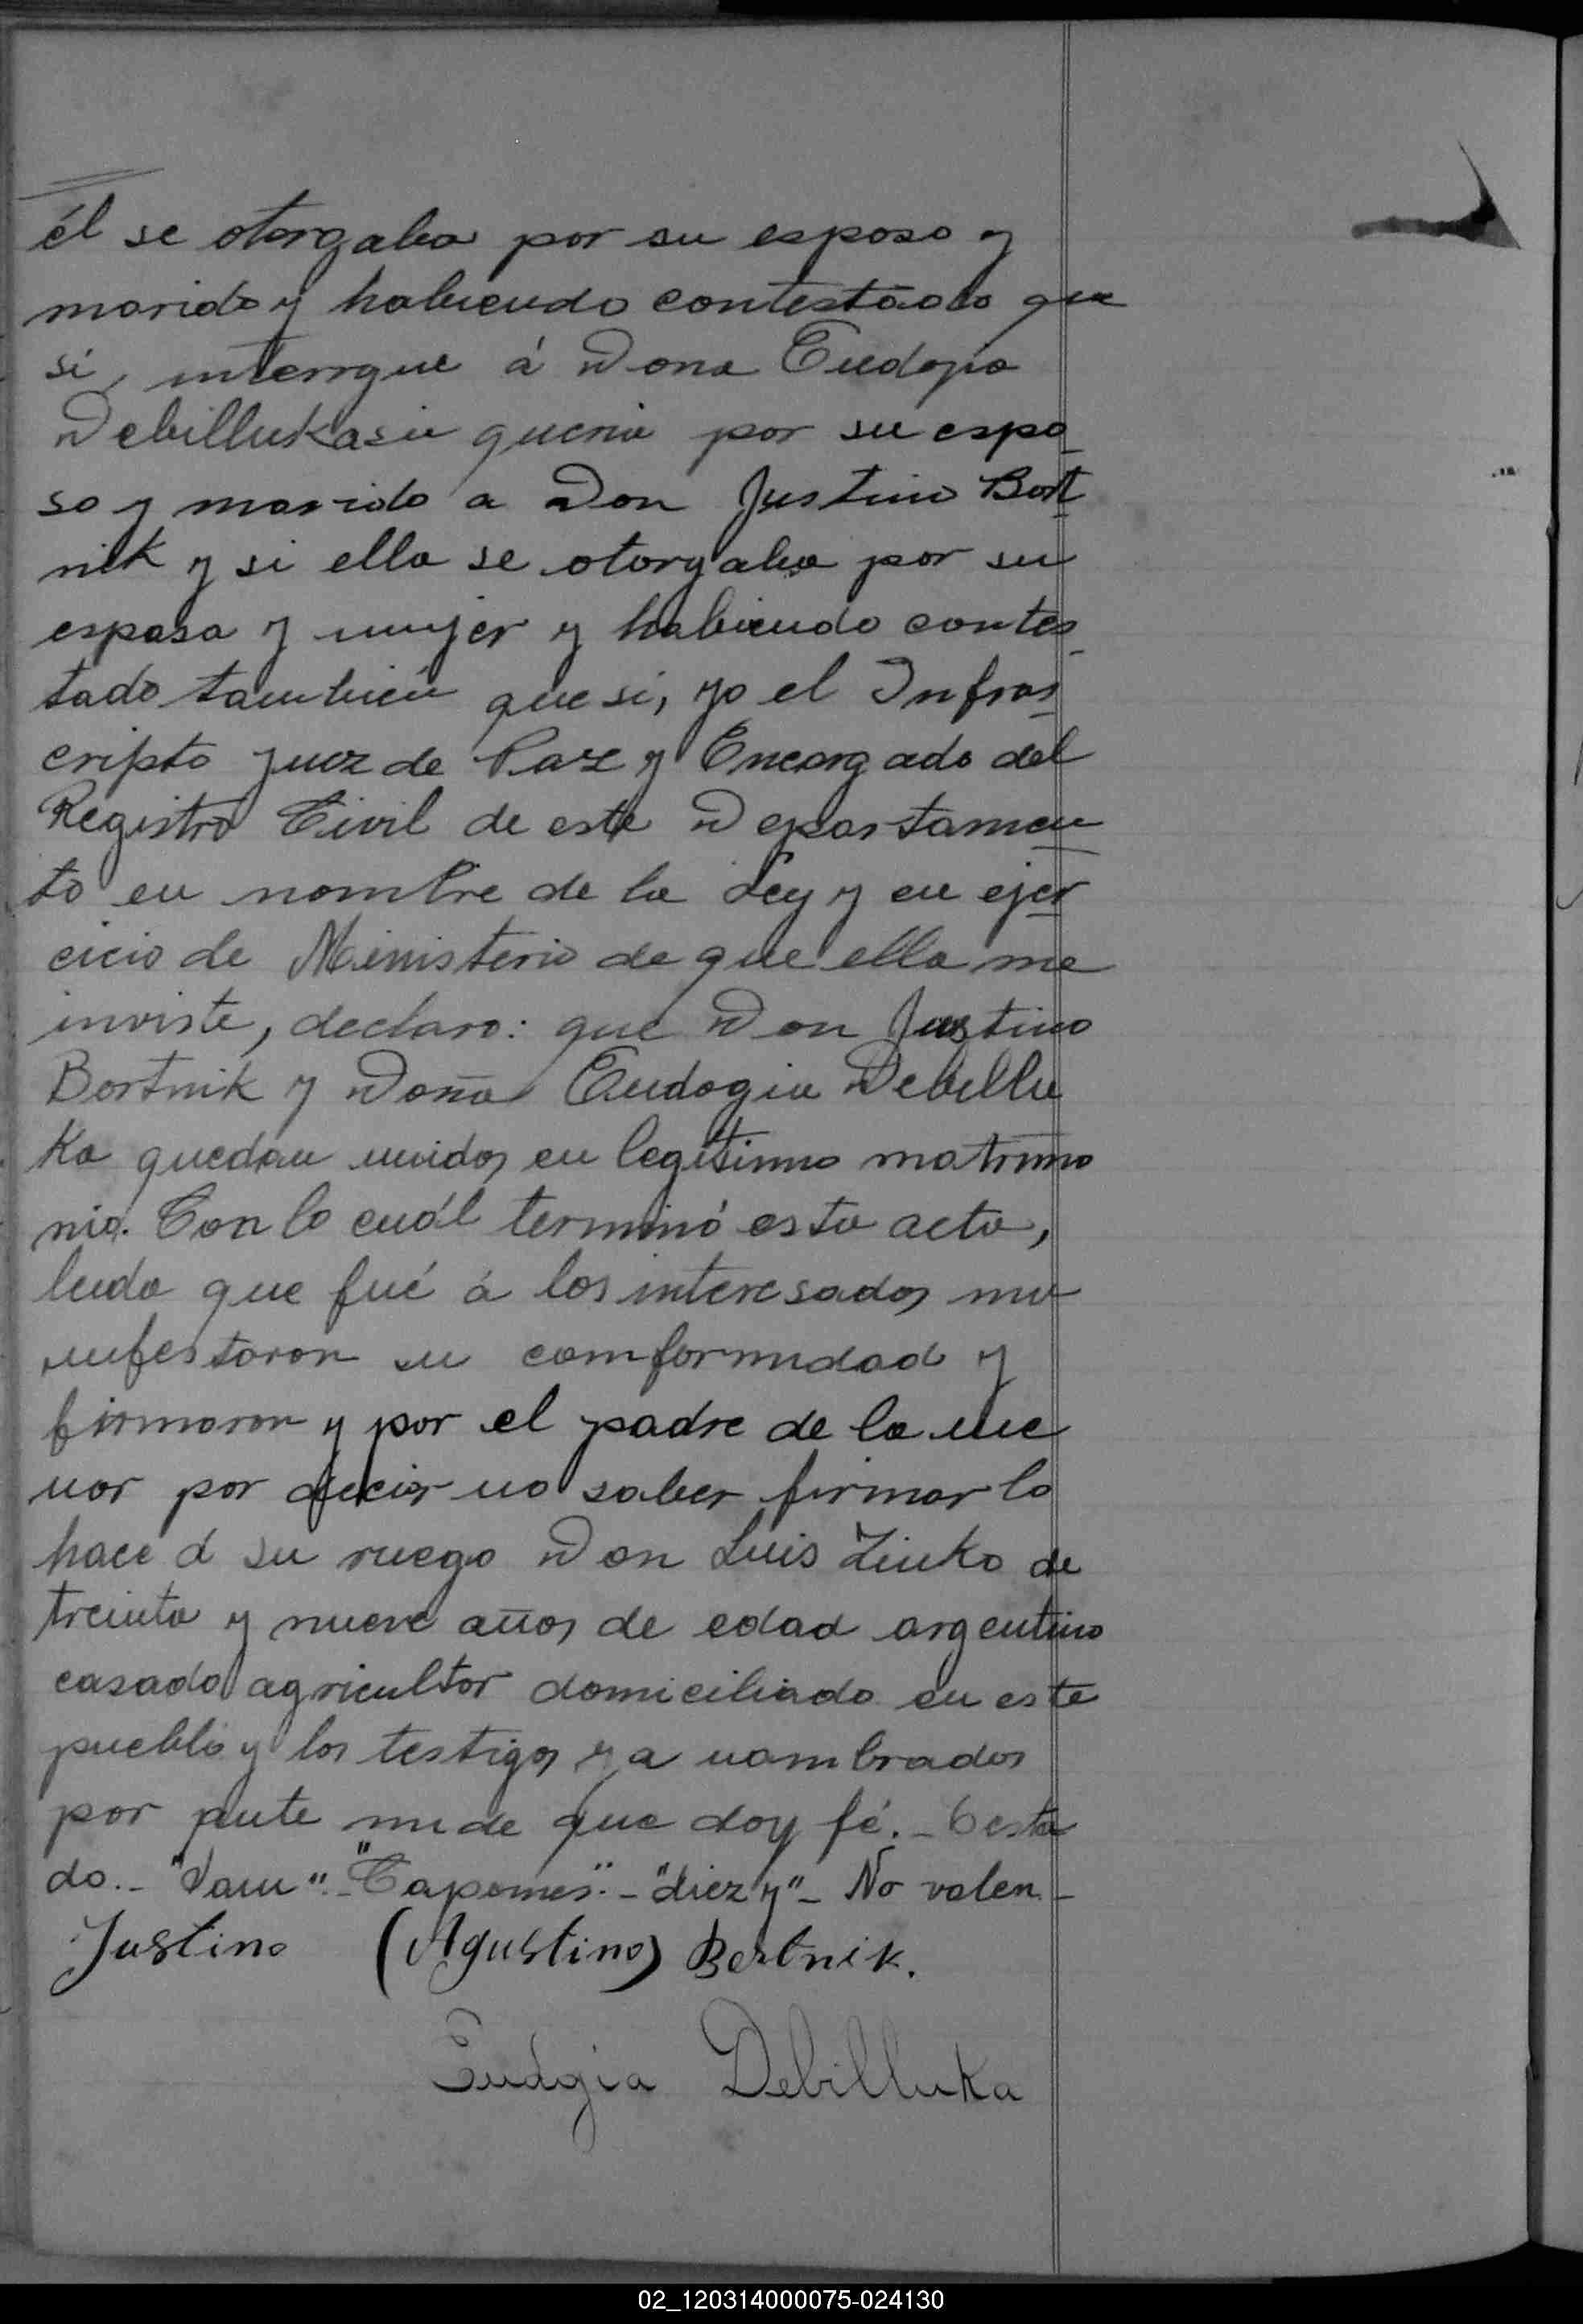 él se otorgaba por su esposo y
marido y habiendo contestado que
si, interrgue á Dona Eudogia
Debillukasia queria por su espo
so y marido a Don Justino Bort
nik y si ella se otorgaba por su
esposa y mujer y habiendo contes
tado también que si, yo el Infras
cripto Juez de Paz y Encargado del
Registro Civil de este Departamen
to en nombre de la Ley y en ejer
cicio de Ministerio de que ella me
inviste, declaro: que Don Justino
Bortnik y Doña Eudogia Debillu
Ka quedan unidos en legitimo matrimo
nio. Con lo cuál terminó esta acta,
leida que fué á los interesados ma
nifestaron su comformidad y
firmaron y por el padre de la me
nor por decir no saber firmar lo
hace á su ruego Don Luis Zinko de
treinta y nueve años de edad argentino
casado agricultor domiciliado en este
pueblo y los testigos ya nombrados
por ante mi de que doy fé. - Testa
do. - "diez y" - No valen -
Justino (Agustino) Bortnik.
Eudgia Debilluka
02_120314000075-024130